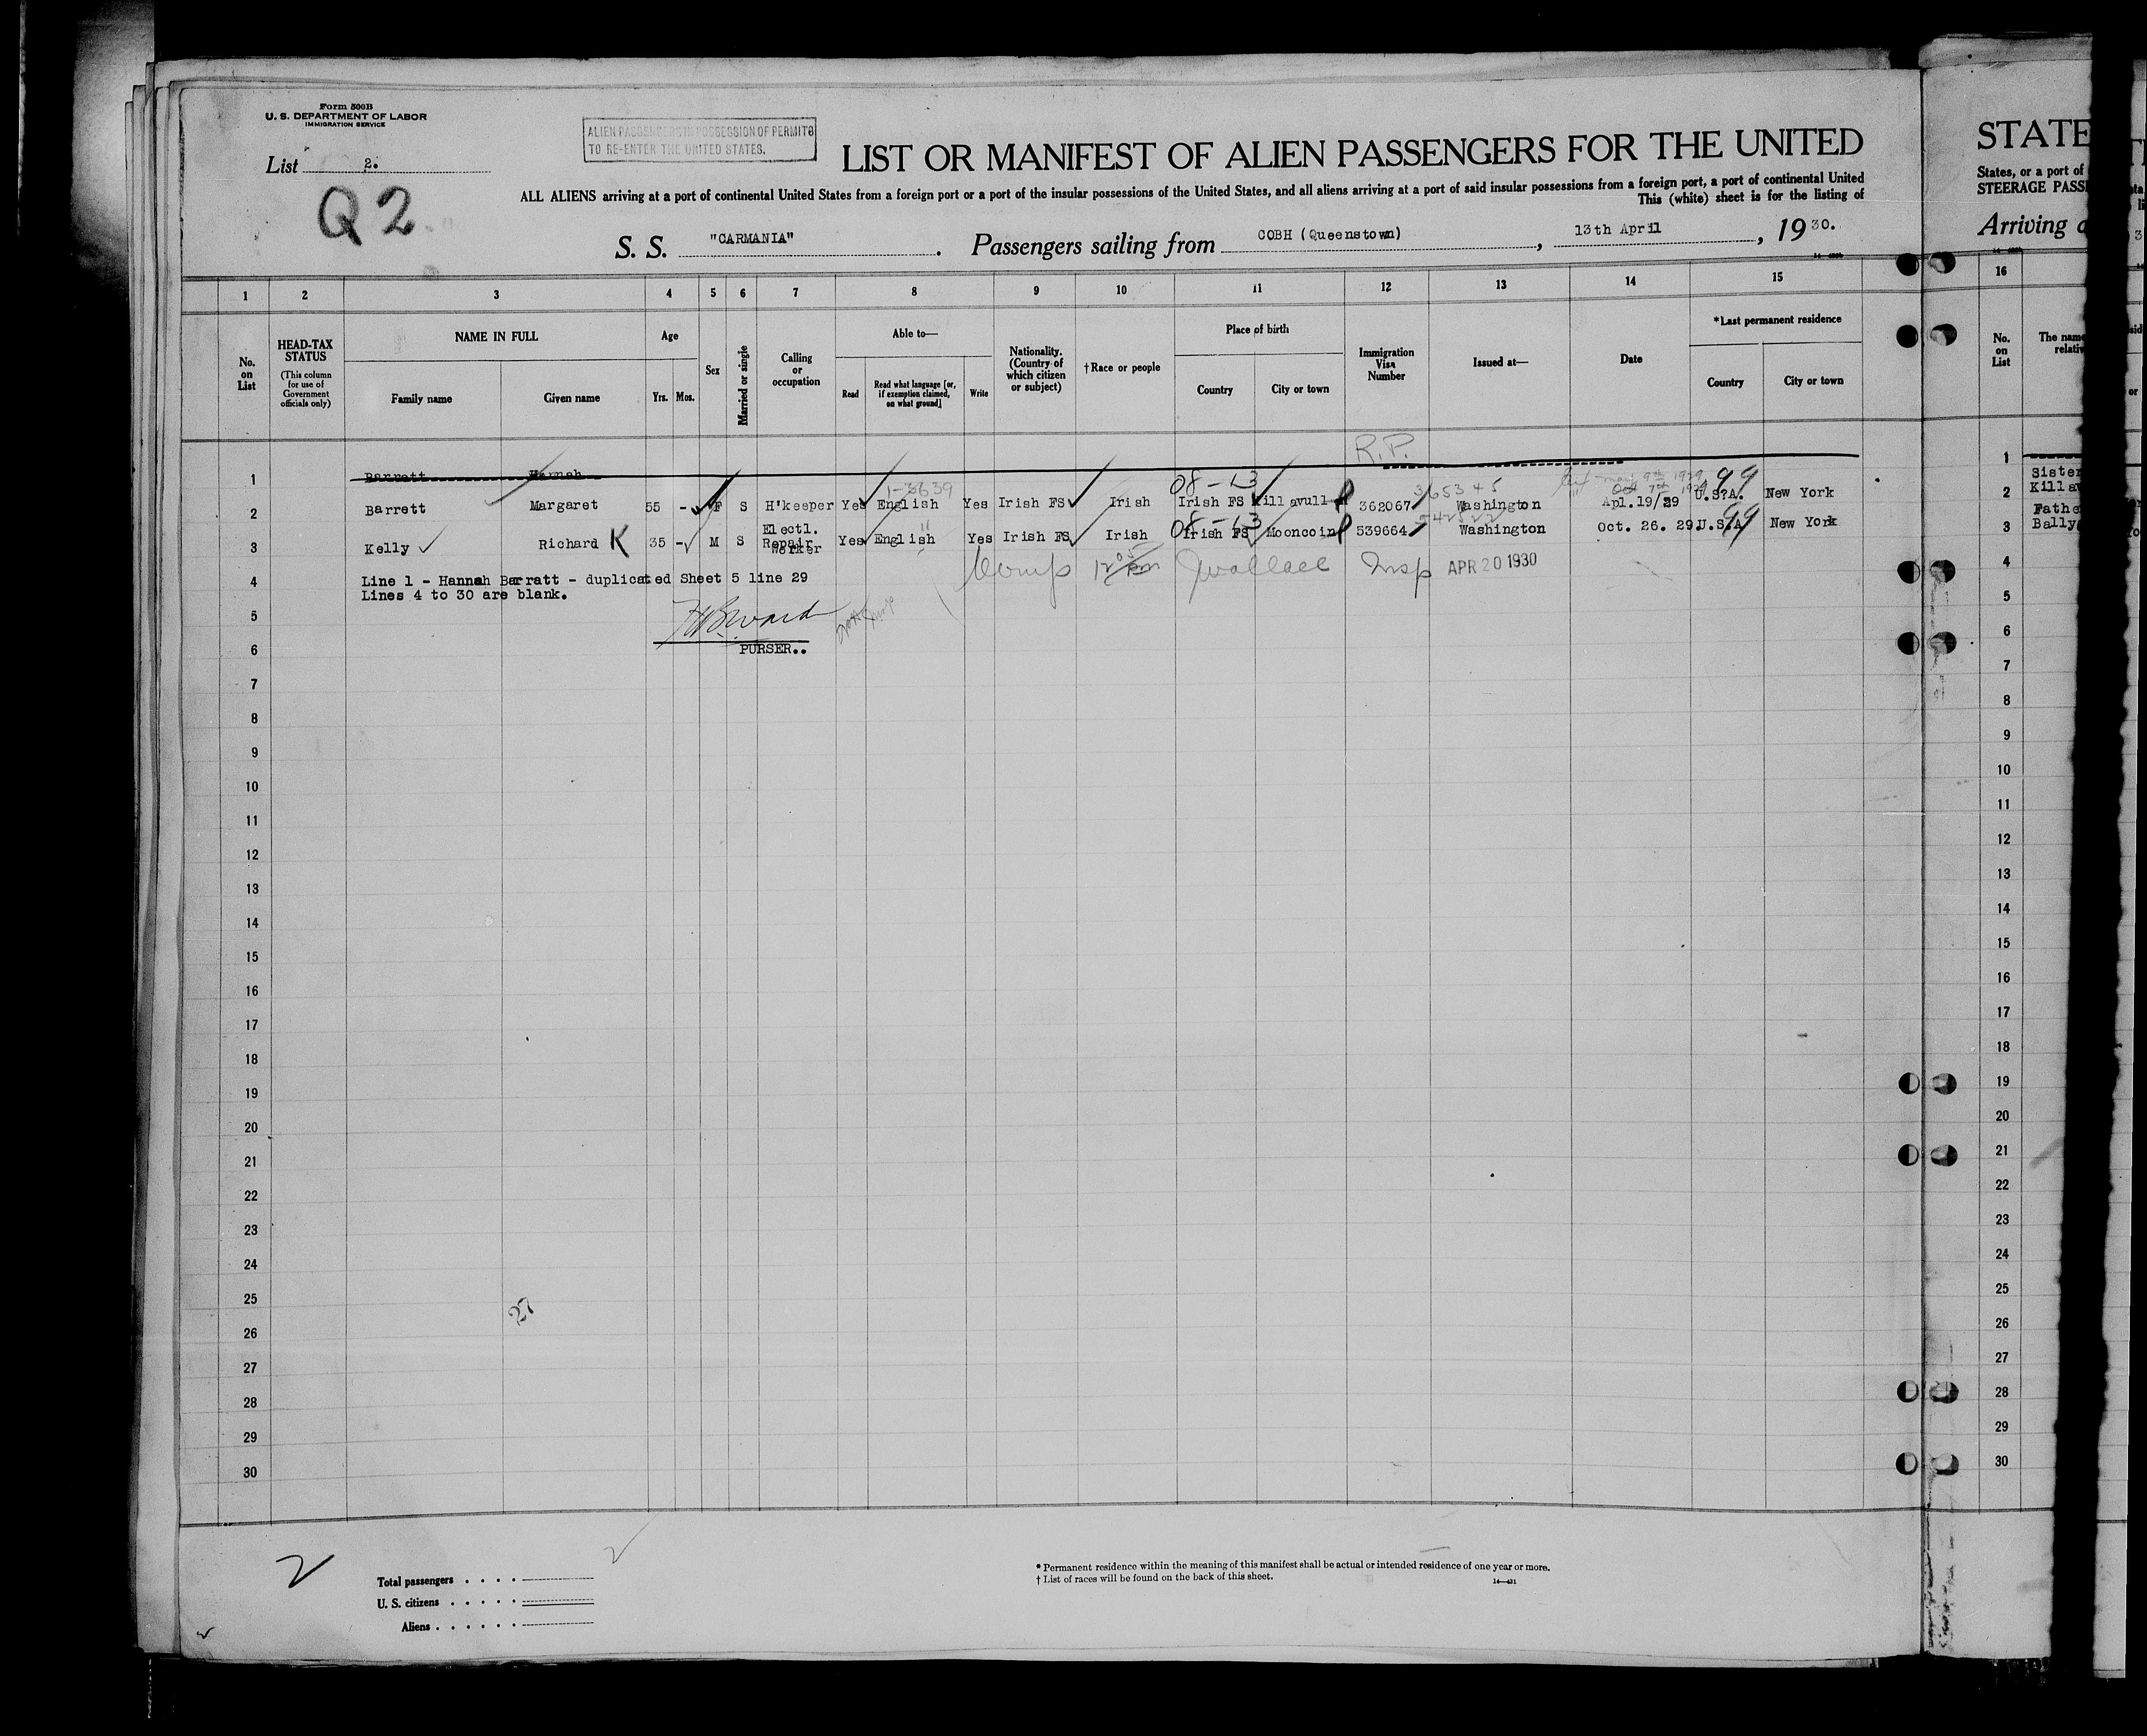 Form 500B
U. S. DEPARTMENT OF LABOR
IMMIGRATION SERVICE
List 2.
Q2
ALIEN PASSENGERS IN POSSESSION OF PERMITS
TO RE-ENTER THE UNITED STATES.
LIST OR MANIFEST OF ALIEN PASSENGERS FOR THE UNITED
ALL ALIENS arriving at a port of continental United States from a foreign port or a port of the insular possessions of the United States, and all aliens arriving at a port of said insular possessions from a foreign port, a port of continental United
This (white) sheet is for the listing of
S. S. "CARMANIA". Passengers sailing from COBH (Queenstown), 13th April, 1930.
1 2 3 4 5 6 7 8 9 10 11 12 13 14 15
No. on List
HEAD-TAX STATUS
(This column for use of Government officials only)
NAME IN FULL
Family name Given name
Age
Yrs. Mos.
Sex
Married or single
Calling or occupation
Able to—
Read
Read what language [or, if exemption claimed, on what ground]
Write
Nationality. (Country of which citizen or subject)
†Race or people
Place of birth
Country City or town
Immigration Visa Number
Issued at—
Date
*Last permanent residence
Country City or town
R.P.
1 Barrett Hannah
08-13
1-3639
365345
2 Barrett Margaret 55 - F S H'keeper Yes English Yes Irish FS Irish Irish FS Killavull 362067 Washington Apl.19/29 U.S.A. New York
99
08-13
3 Kelly Richard K 35 - M S Electl. Repair Worker Yes English Yes Irish FS Irish Irish FS Mooncoin 539664 Washington Oct. 26. 29 U.S.A New York
99
4 Line 1 - Hannah Barratt - duplicated Sheet 5 line 29
Lines 4 to 30 are blank.
JWallace Insp APR 20 1930
5
6
PURSER..
7
8
9
10
11
12
13
14
15
16
17
18
19
20
21
22
23
24
25
27
26
27
28
29
30
Total passengers
U. S. citizens
Aliens
* Permanent residence within the meaning of this manifest shall be actual or intended residence of one year or more.
† List of races will be found on the back of this sheet.
14—431
STATE
States, or a port of
STEERAGE PASS
Arriving
16
No. on List
The name
relativ
1
Sister
2 Killa
Fathe
3 Bally
4
5
6
7
8
9
10
11
12
13
14
15
16
17
18
19
20
21
22
23
24
25
26
27
28
29
30